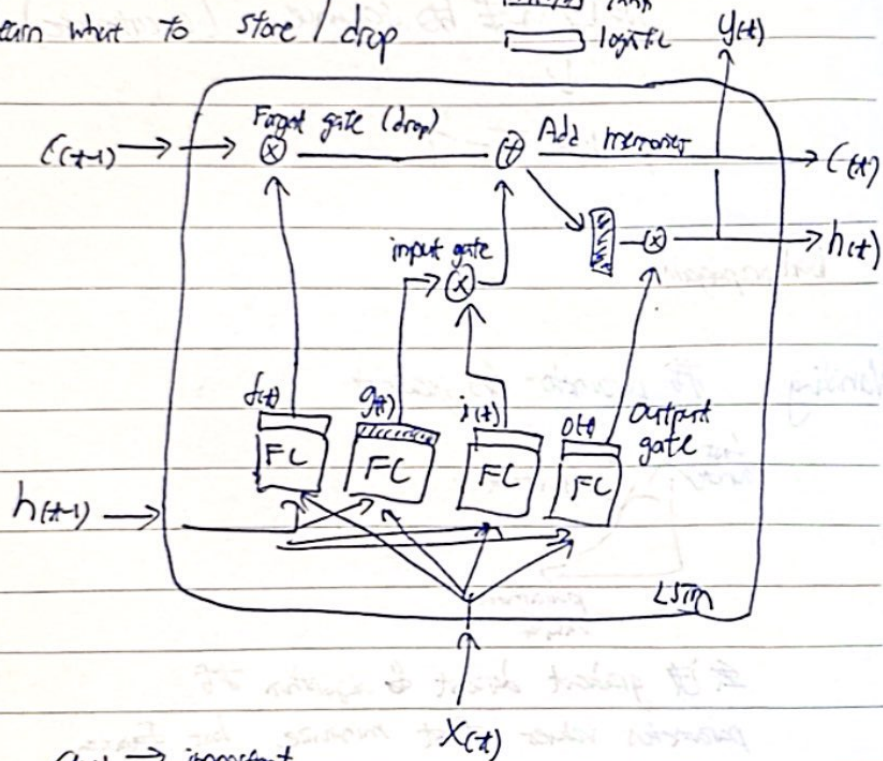 earn what to store / drop
tanh
logistic
y(t)
Forget gate (drop)
Add memories
C(t-1)
C(t)
h(t)
input gate
f(t)
g(t)
i(t)
o(t)
Output gate
FC
FC
FC
FC
h(t-1)
LSTM
X(t)
important